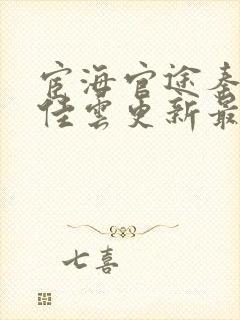 宦海官途秦
佳云更新最
七喜